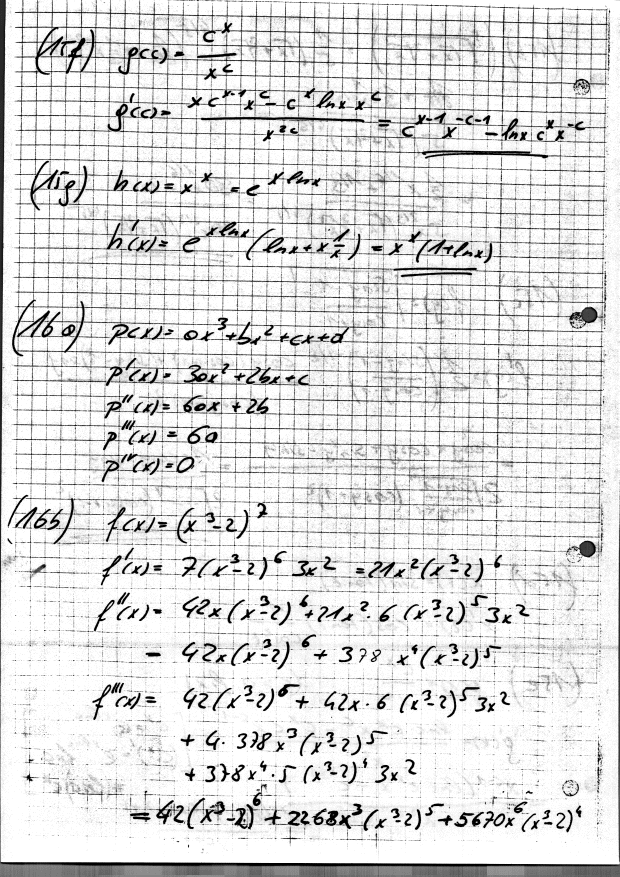 (15f) g(c) = c^x / x^c
g'(c) = (x c^(x-1) x^c - c^x ln x x^c) / x^(2c) = c^(x-1) x^(-c-1) - ln x c^x x^(-c)
(15g) h(x) = x^x = e^(x ln x)
h'(x) = e^(x ln x) (ln x + x 1/x) = x^x (1 + ln x)
(16a) p(x) = ax³ + bx² + cx + d
p'(x) = 3ax² + 2bx + c
p''(x) = 6ax + 2b
p'''(x) = 6a
p^IV(x) = 0
(16b) f(x) = (x³-2)^7
f'(x) = 7(x³-2)^6 3x² = 21x²(x³-2)^6
f''(x) = 42x(x³-2)^6 + 21x² · 6 (x³-2)^5 3x²
= 42x(x³-2)^6 + 378 x^4 (x³-2)^5
f'''(x) = 42(x³-2)^6 + 42x · 6 (x³-2)^5 3x²
+ 4 · 378 x³ (x³-2)^5
+ 378x^4 · 5 (x³-2)^4 3x²
= 42(x³-2)^6 + 2268x³(x³-2)^5 + 5670x^6(x³-2)^4